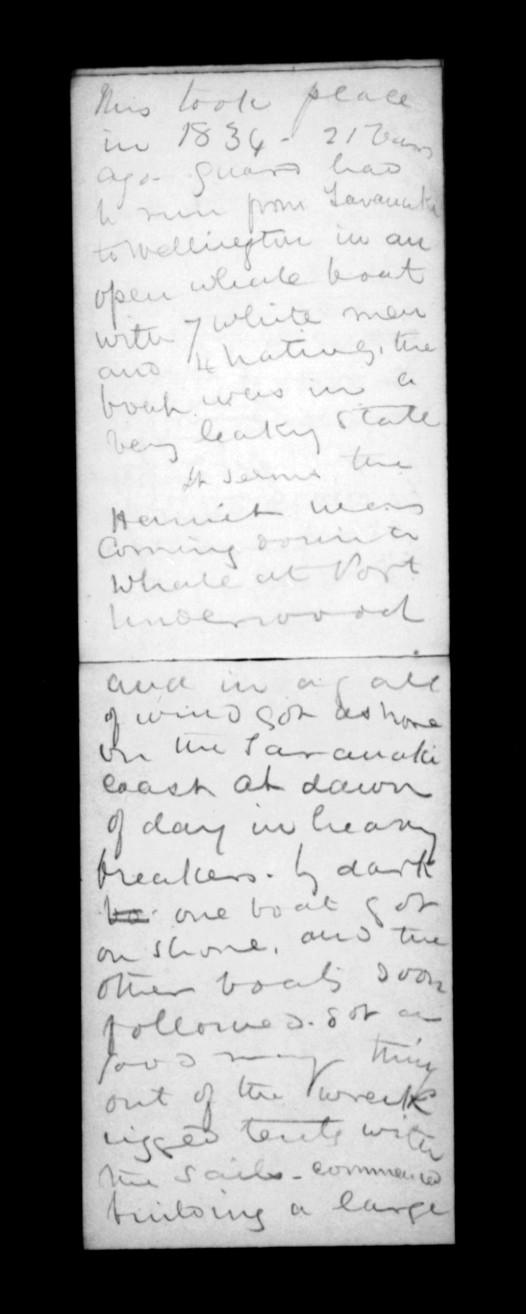 This took place
in 1834 - 21 Years
ago - Guard had
to run from Taranaki
to Wellington in an
open whale boat
with 7 white men
and 4 natives, the
boat was in a
very leaky state
It seems the
Harriet was
Coming down to
Whale at Port
Underwood
and in a gale
of wind got ashore
on the Taranaki
coast at dawn
of day in heavy
breakers. by dark
one boat got
on shore, and the
other boats soon
followed. got a
good many thing
out of the wreck
rigged tents with
the sails - commenced
building a large